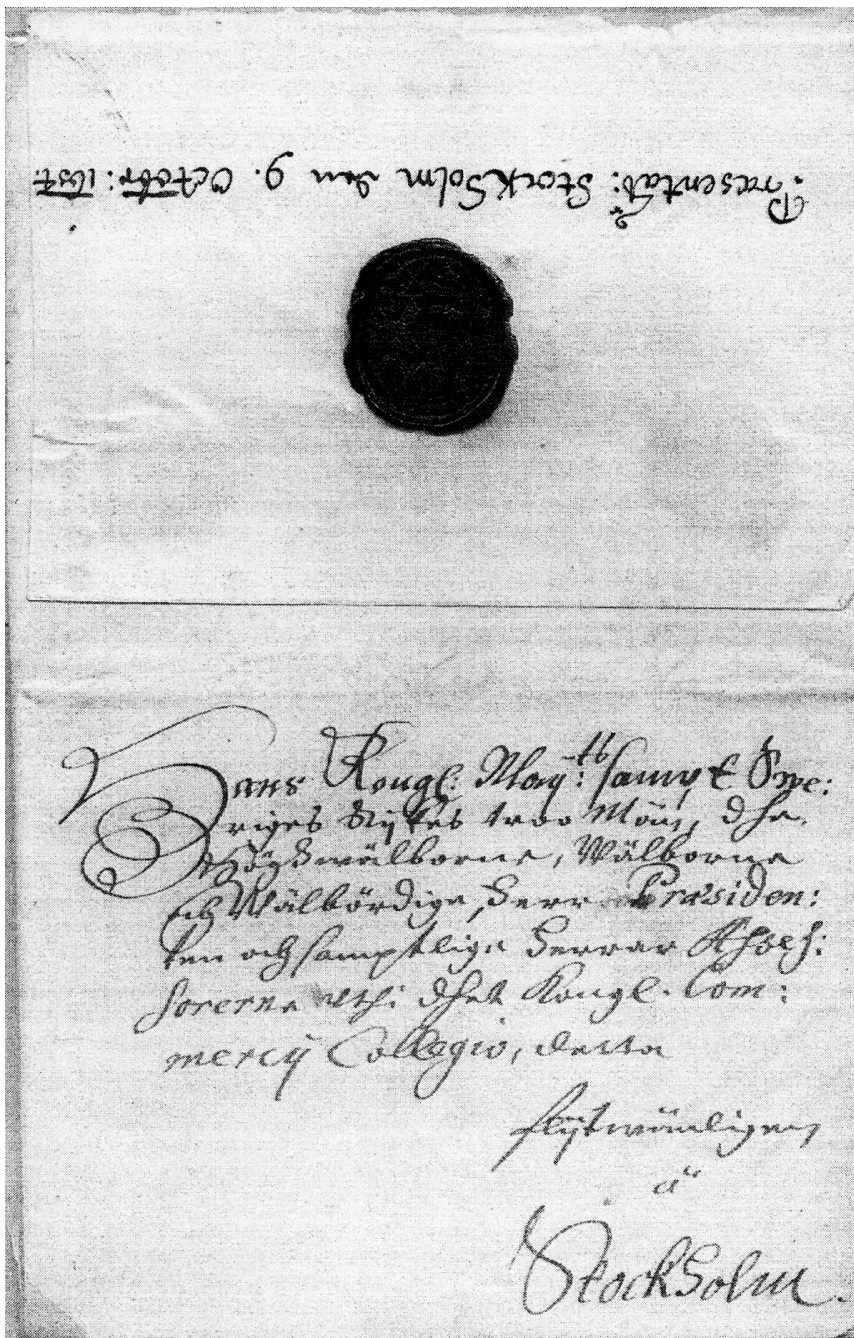 Præsentat: StockHolm den 9. Octobr: 1657.
Hans Kongl: May:tts sampt Swe:
riges Rijkes troo Män, dhe
Högwälborne, Wälborne
och Wälbördige, Herr Præsiden:
ten och samptlige Herrar Assess:
sorerne uthi dhet Kongl. Com:
mercij Collegio, detta
flijtwänligen
â
StockHolm.